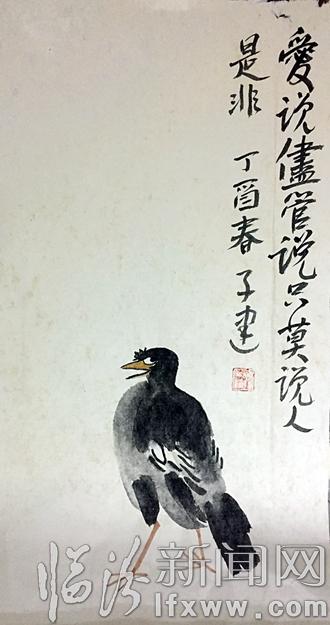 愛说儘管说只莫说人
是非 丁酉春 子建
临汾新闻网
lfxww.com